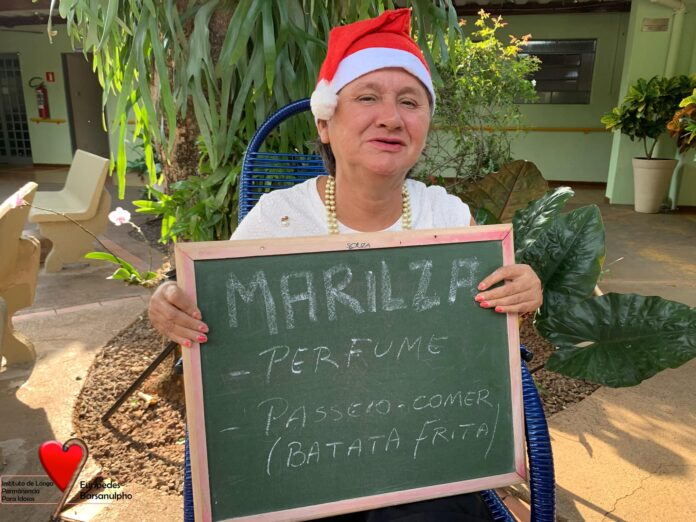 SOUZA
MARILZA
- PERFUME
- PASSEIO - COMER
(BATATA FRITA)
Instituto de Longa
Permanência
Para Idosos
Eurípedes
Barsanulpho